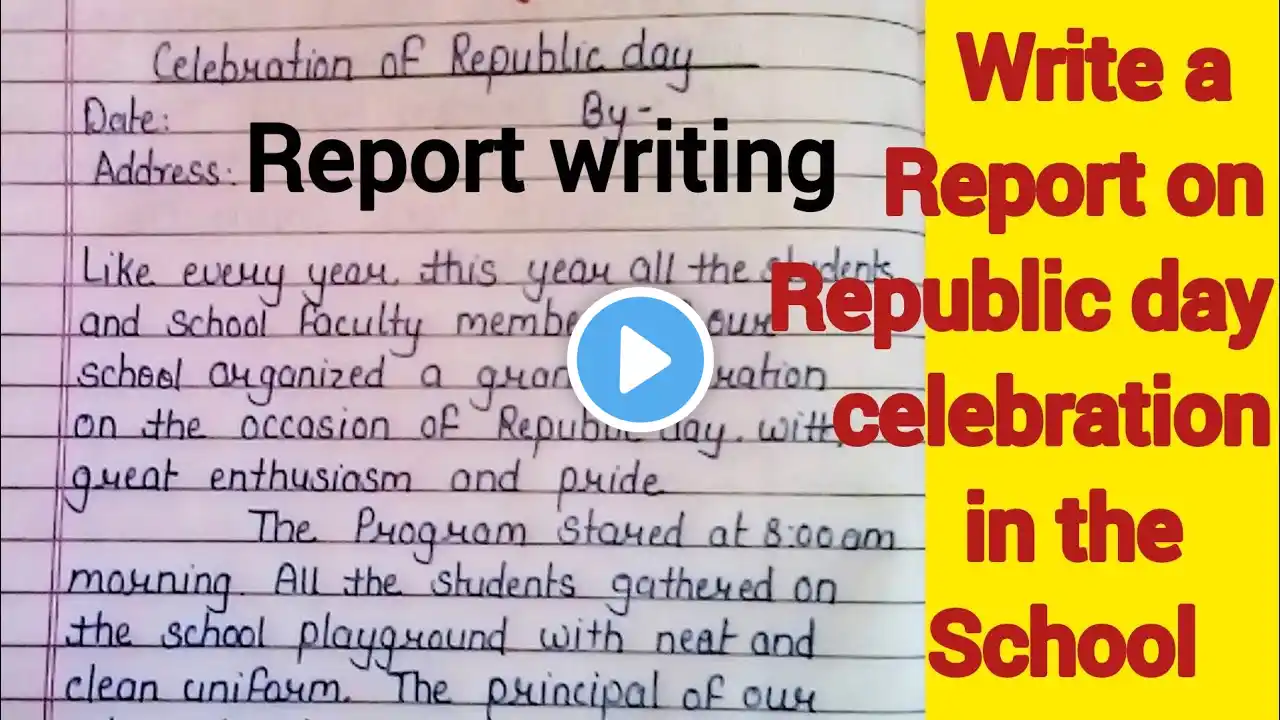 Celebration of Republic day
Date: By-
Address:
Report writing
Like every year, this year all the students
and school faculty our
school organized a
on the occasion of Republic day. with
great enthusiasm and pride
The Program Stared at 8:00am
morning. All the students gathered on
the school playground with neat and
clean uniform. The principal of our
Write a
Report on
Republic day
celebration
in the
School